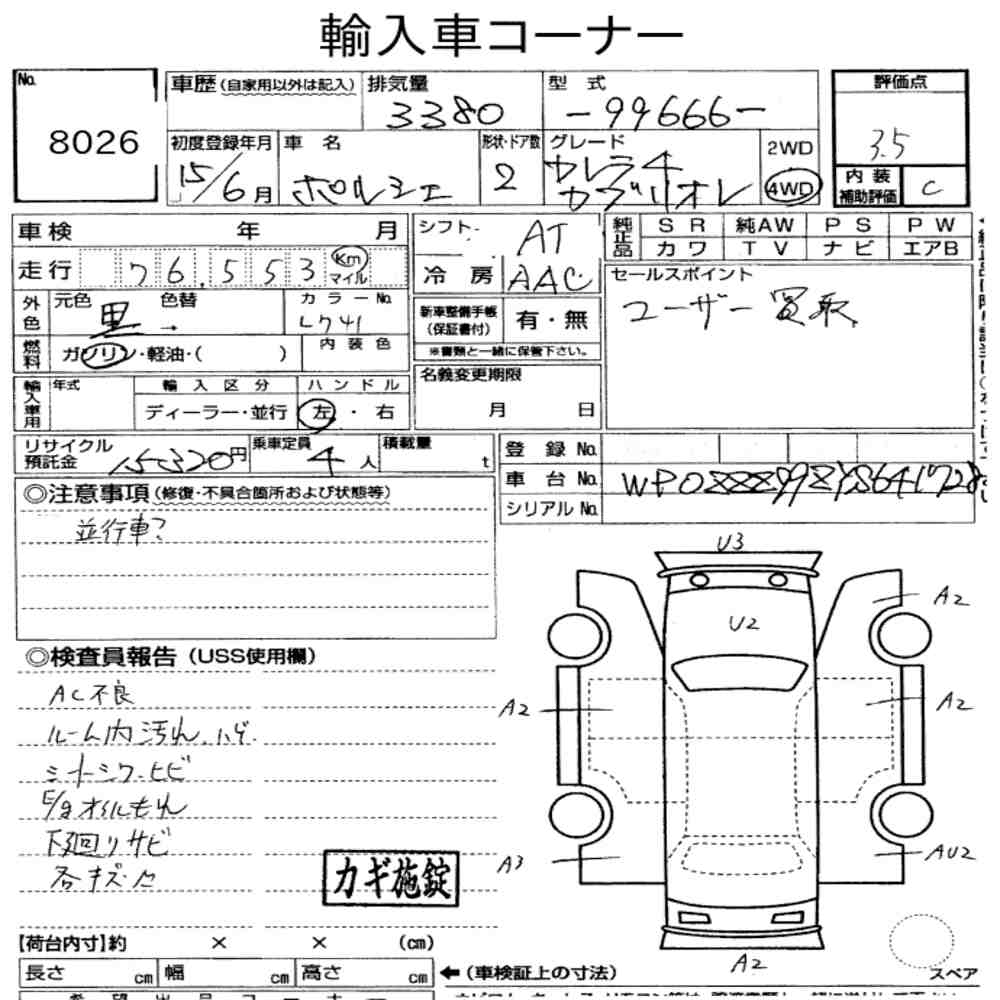 輸入車コーナー
No.
8026
車歴(自家用以外は記入)
排気量
3380
型式
-99666-
評価点
3.5
初度登録年月
15/6月
車名
ポルシェ
形状・ドア数
2
グレード
カレラ4
カブリオレ
2WD
4WD
内装
補助評価
C
車検 年 月
走行 76,553 Km マイル
シフト AT
冷房 AAC
純正品
SR 純AW PS PW
カワ TV ナビ エアB
外色
元色 黒→
色替
カラーNo.
L741
新車整備手帳
(保証書付)
有・無
※書類と一緒に保管下さい。
セールスポイント
ユーザー買取
燃料
ガソリン・軽油・( )
内装色
輸入車用
年式
輸入区分
ディーラー・並行
ハンドル
左・右
名義変更期限
月 日
リサイクル
預託金 15320円
乗車定員
4人
積載量
t
登録No.
車台No. WP0ZZZ99ZYS641728
シリアルNo.
◎注意事項(修復・不具合箇所および状態等)
並行車?
◎検査員報告(USS使用欄)
AC不良
ルーム内汚れ、ハゲ
シートシワ・ヒビ
E/gオイルもれ
下廻りサビ
各キズ・凹
カギ施錠
U3
A2
U2
A2
A2
A3
AU2
A2
スペア
【荷台内寸】約 × × (cm)
長さ cm 幅 cm 高さ cm
←(車検証上の寸法)